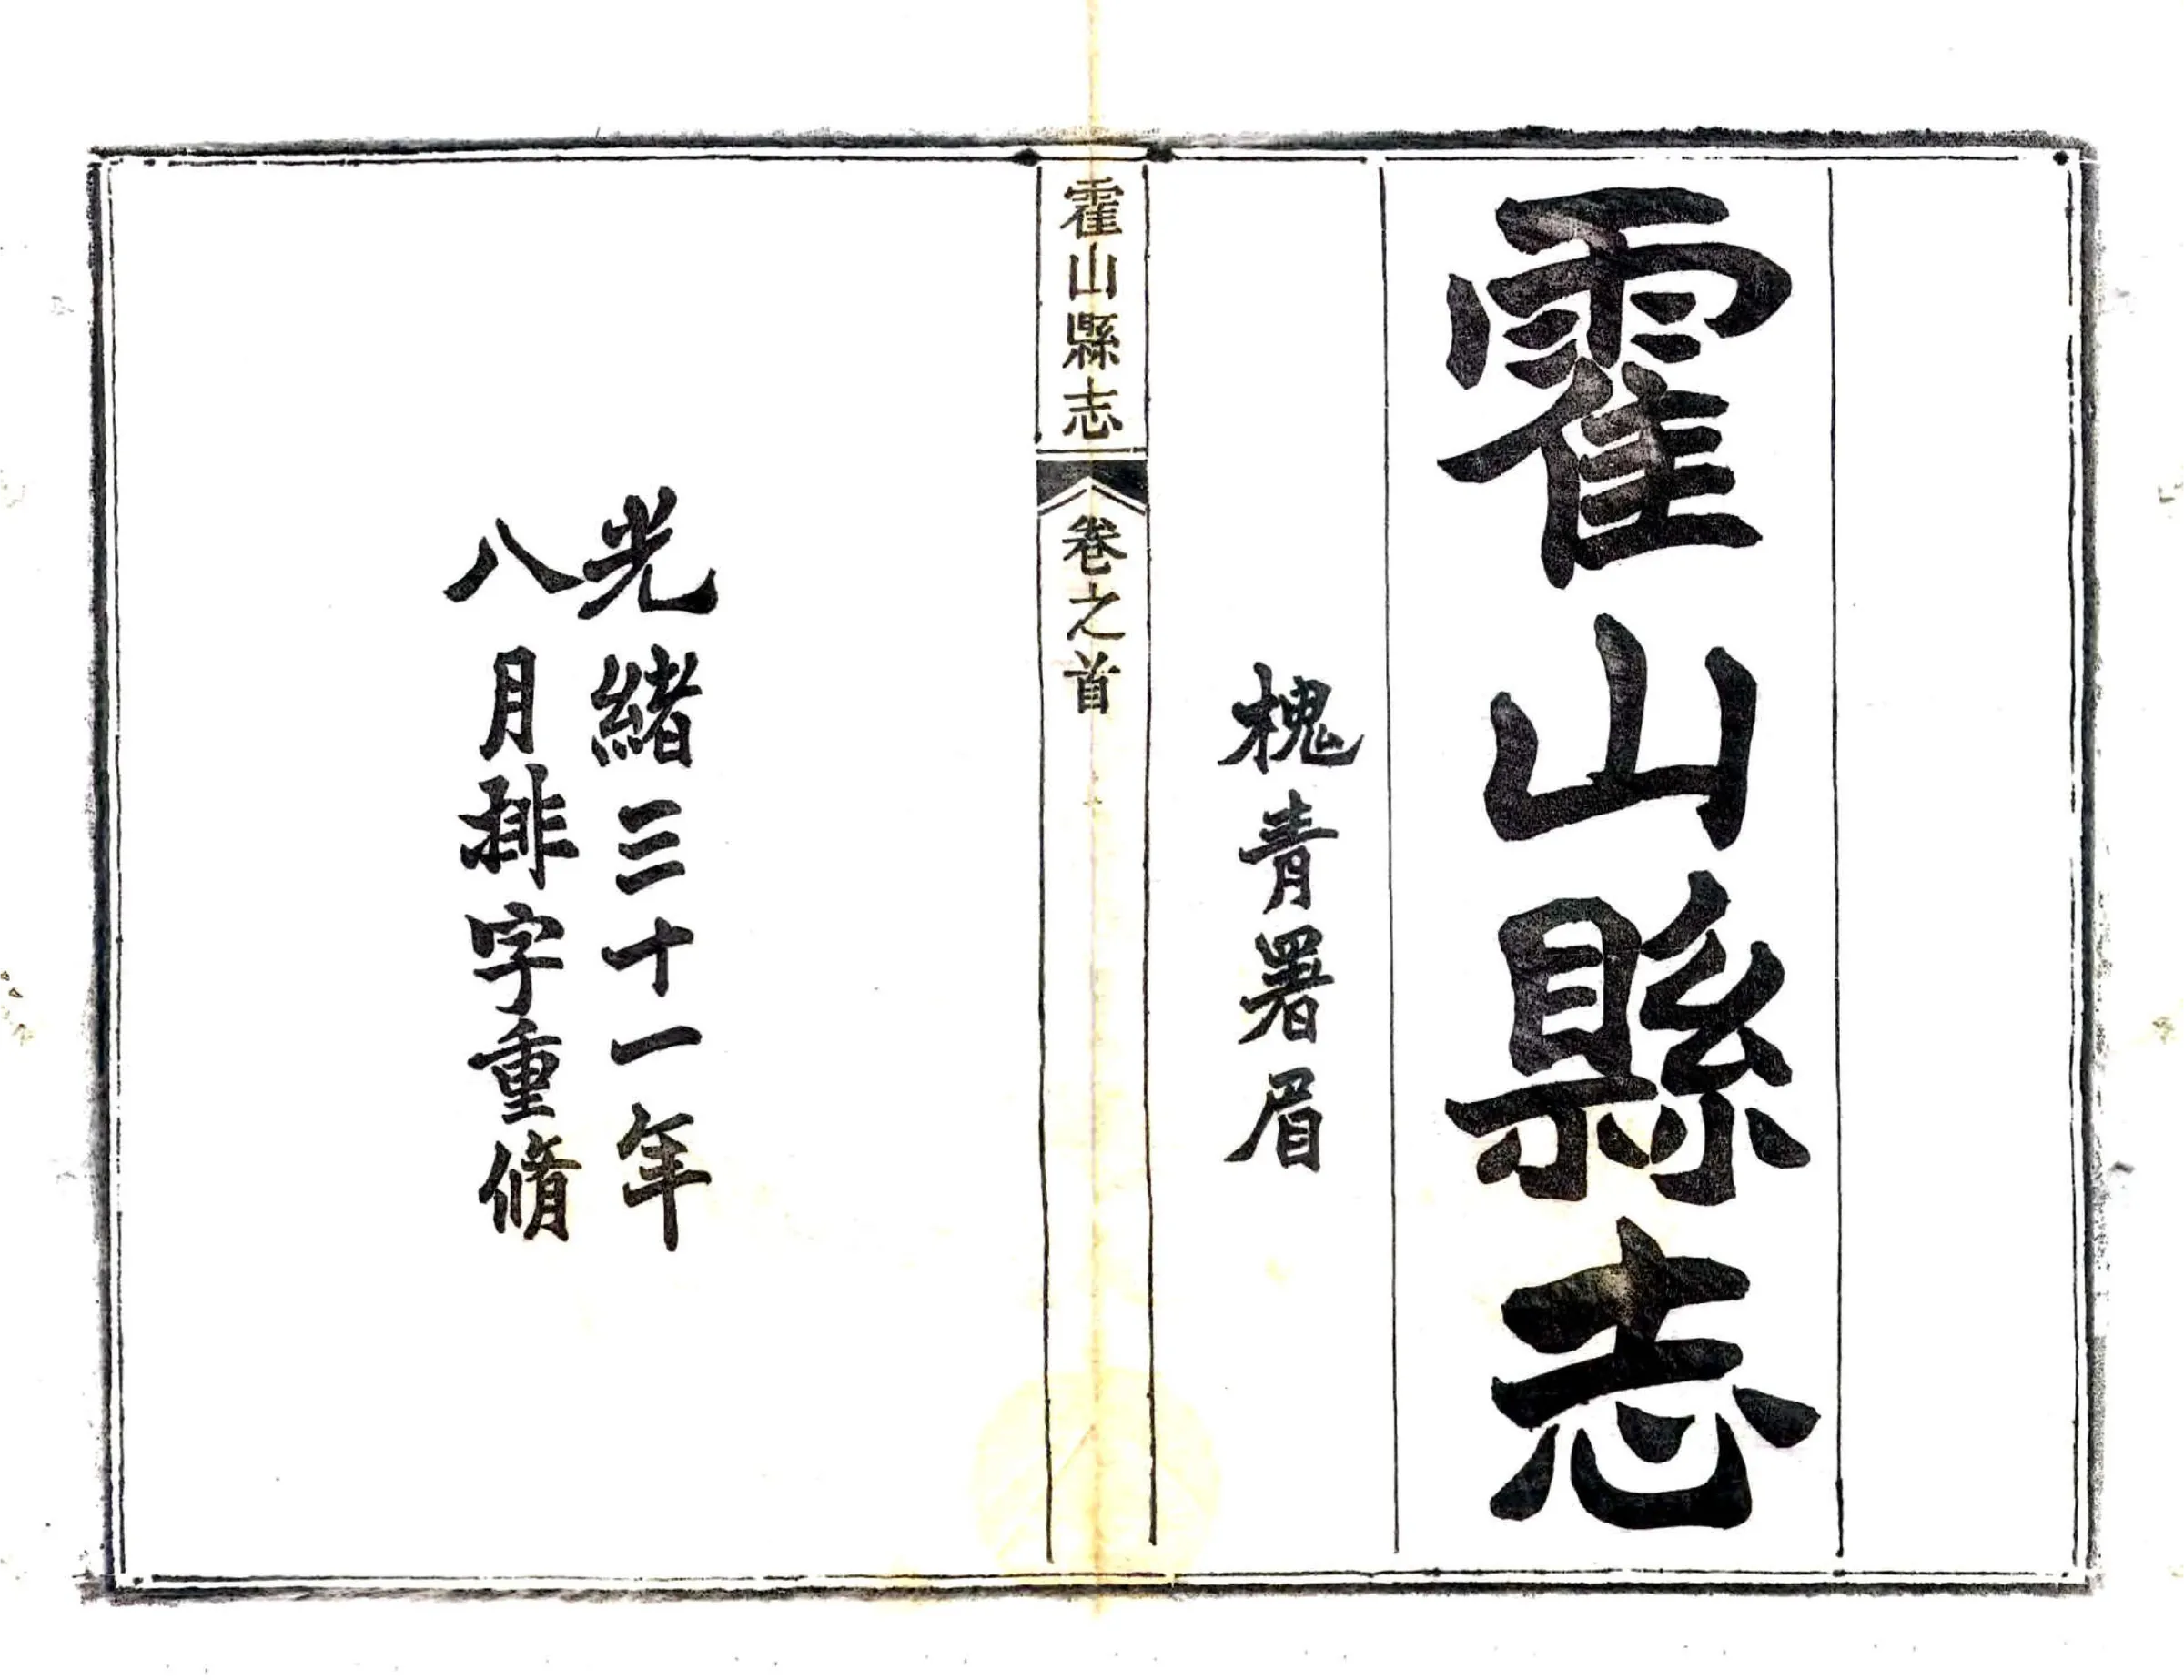 霍山縣志
槐青署眉
霍山縣志
卷之首
光緒三十一年
八月排字重脩